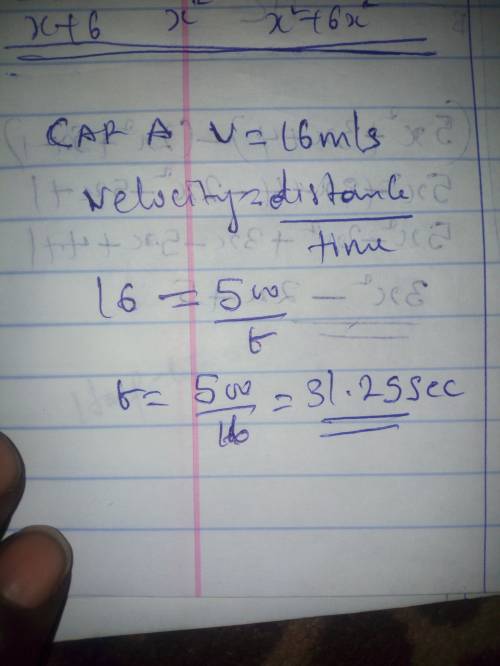 x+6 x² x²+6x²
CAR A V=16m/s
Velocity=distance
time
16 = 500
t
t= 500 = 31.25sec
16